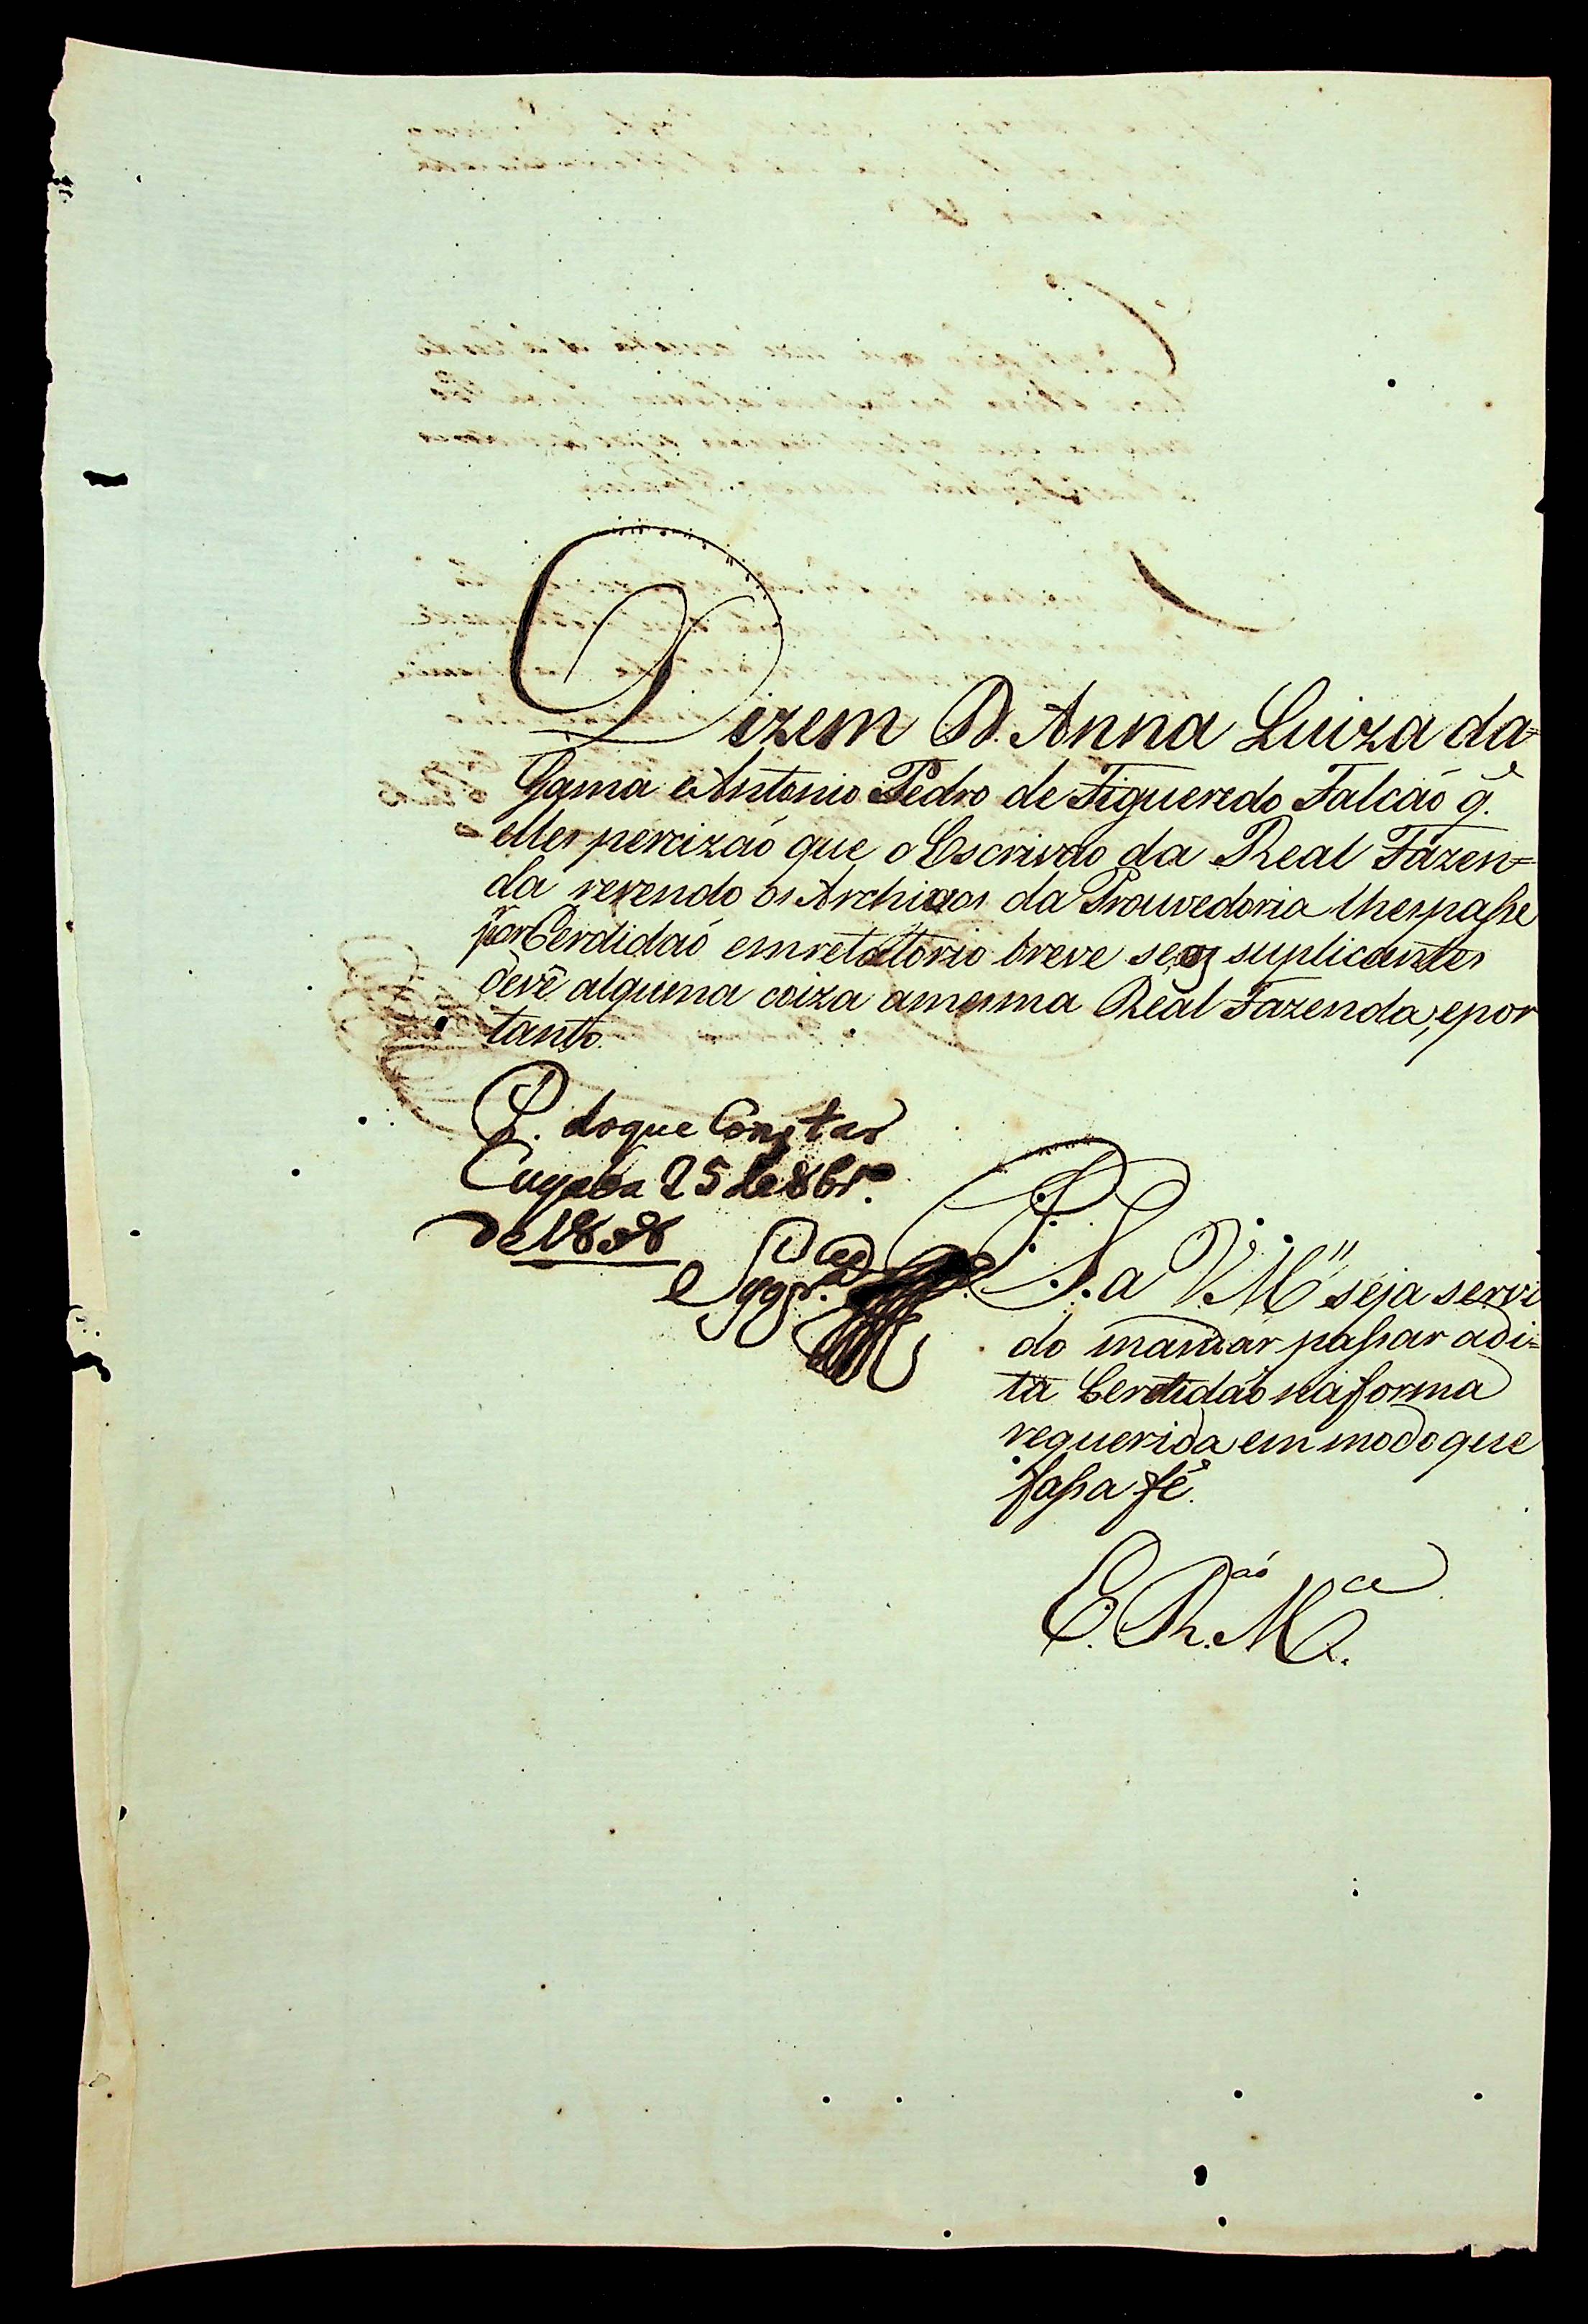 Dizem D. Anna Luiza da=
Gama e Antonio Pedro de Figueredo Falcaó q̃.
elles percizaó que o Escrivão da Real Fazen=
da revendo os Archivos da Prouvedoria lhes paſse
por Cerdidaó em retatorio breve se os suplicantes
devẽ alguma coiza a mesma Real Fazenda, e por
tanto
P. do que Constar
Cuyaba 25 de 8br.º
de 1808
P. a V. M.ᶜᵉ seja servi
do mandar paſsar a di=
ta Certidaó na forma
requerida em modo que
faſsa fé.
E. R.ᵃó M.ᶜᵉ